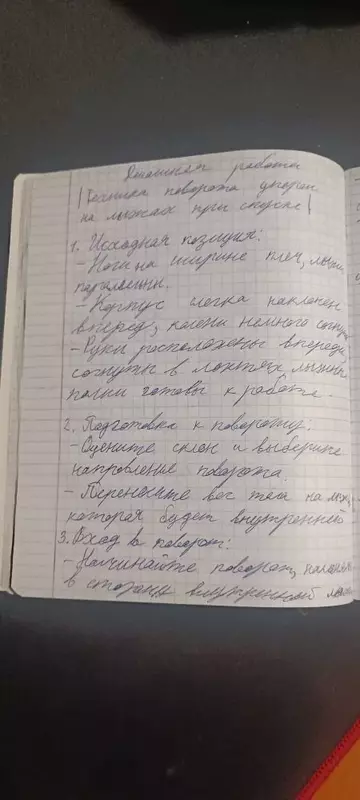 Домашняя работа
|Техника поворота упором
на лыжах при спуске|
1. Исходная позиция:
- Ноги на ширине плеч, лыжи
параллельны.
- Корпус слегка наклонен
вперед, колени немного согнуты
- Руки расположены впереди,
согнуты в локтях, лыжные
палки готовы к работе.
2. Подготовка к повороту:
- Оцените склон и выберите
направление поворота.
- Переносите вес тела на лыж
которая будет внутренней
3. Вход в поворот:
- Начинайте поворот, наклон
в сторону внутренней лыжи